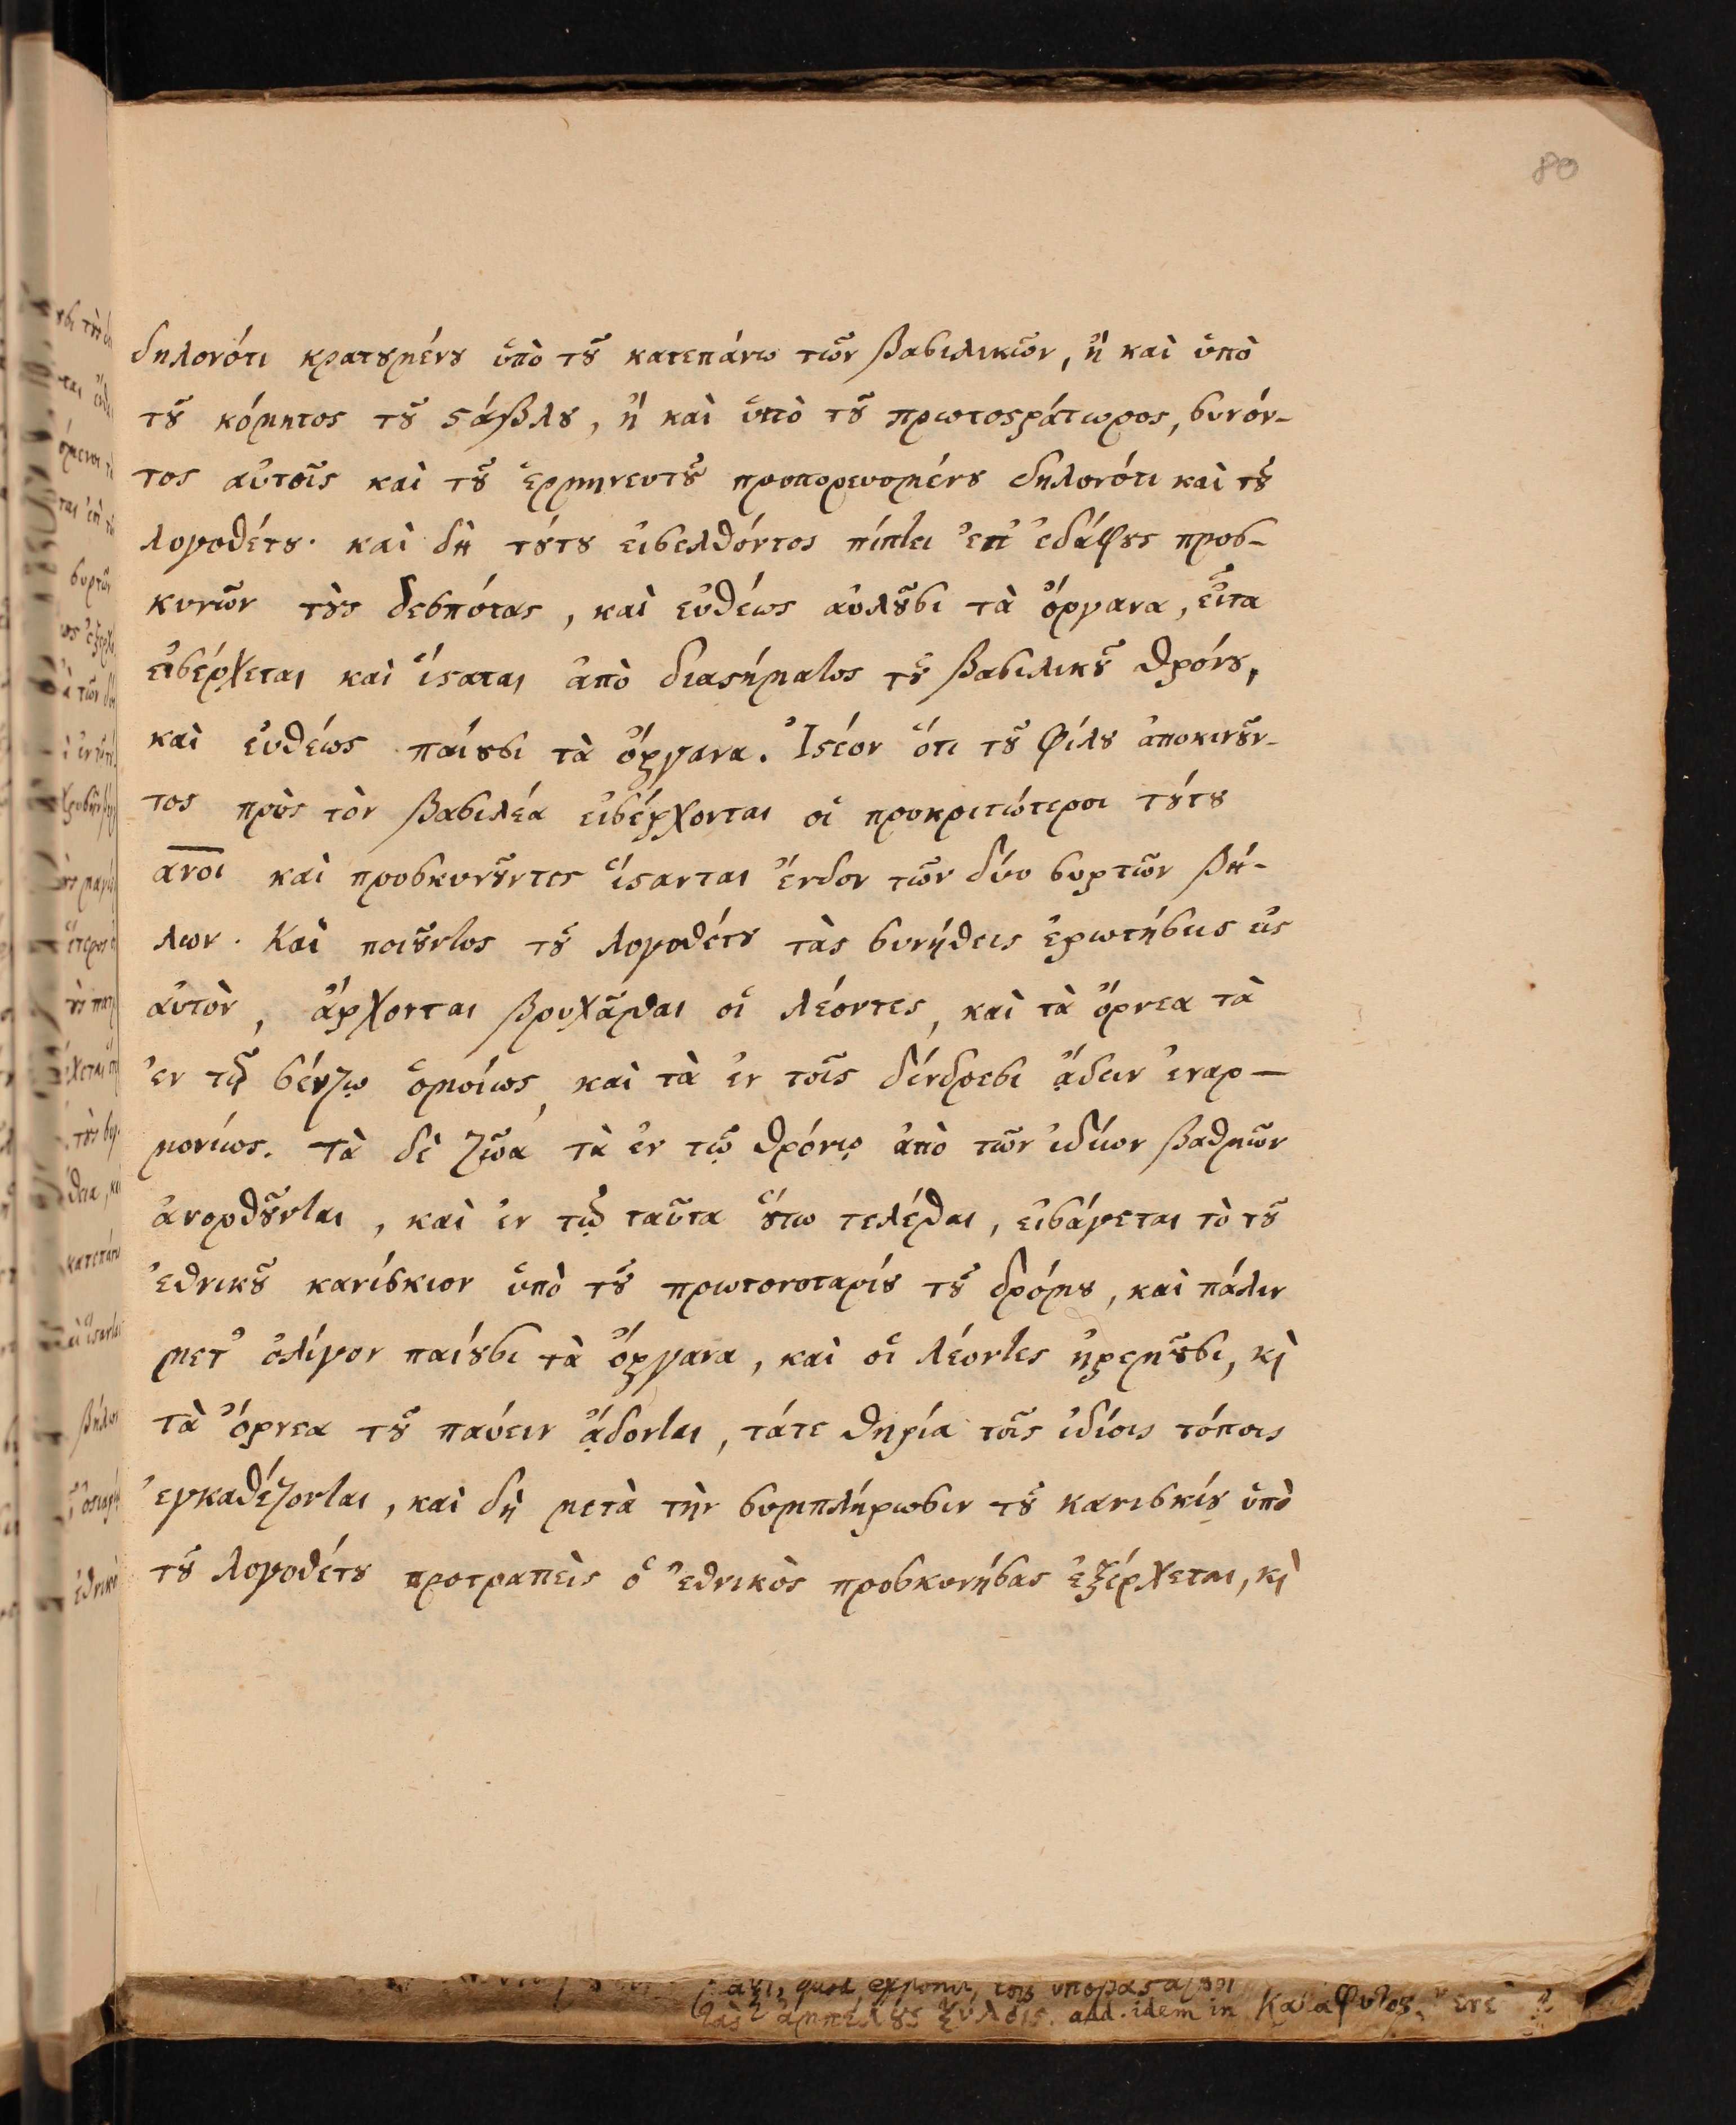 80
δηλονότι κρατȣμένȣ ὑπὸ τȣ͂ κατεπάνω τῶν βασιλικῶν, ἢ καὶ ὑπὸ
τȣ͂ κόμητος τȣ͂ ϛάβλȣ, ἢ καὶ ὑπὸ τȣ͂ πρωτοϛράτωρος, συνόν-
τος αὐτοῖς καὶ τȣ͂ ἑρμηνευτȣ͂ προπορευομένȣ δηλονότι καὶ τȣ͂
λογοθέτȣ· καὶ δὴ τȣ́τȣ εἰσελθόντος πίπτει ἐπ' ἐδάφȣς προσ-
κυνῶν τȣ̀ς δεσπότας, καὶ εὐθέως αὐλȣ͂σι τὰ ὄργανα, εἶτα
εἰσέρχεται καὶ ἵϛαται ἀπὸ διαϛήματος τȣ͂ βασιλικȣ͂ θρόνȣ,
καὶ εὐθέως παύȣσι τὰ ὄργανα. Ἰϛέον ὅτι τȣ͂ φίλȣ ἀποκινȣ͂ν-
τος πρὸς τὸν βασιλέα εἰσέρχονται οἱ προκριτώτεροι τȣ́τȣ
α̅ν̅ο̅ι̅ καὶ προσκυνȣ͂ντες ἵϛανται ἔνδον τῶν δύο συρτῶν βή-
λων. Καὶ ποιȣ͂ντος τȣ͂ λογοθέτȣ τὰς συνήθεις ἐρωτήσεις εἰς
αὐτὸν, ἄρχονται βρυχᾶσθαι οἱ λέοντες, καὶ τὰ ὄρνεα τὰ
ἐν τῷ σένζῳ ὁμοίως, καὶ τὰ ἐν τοῖς δένδρεσι ᾄδειν ἐναρ-
μονίως. τὰ δὲ ζῶα τὰ ἐν τῷ θρόνῳ ἀπὸ τῶν ἰδίων βαθμῶν
ἀνορθȣ͂νται, καὶ ἐν τῷ ταῦτα ȣ̔́τω τελέσθαι, εἰσάγεται τὸ τȣ͂
ἐθνικȣ͂ κανίσκιον ὑπὸ τȣ͂ πρωτονοταρίȣ τȣ͂ δρόμȣ, καὶ πάλιν
μετ' ὀλίγον παύȣσι τὰ ὄργανα, καὶ οἱ λέοντες ἠρεμȣ͂σι, κỳ
τὰ ὄρνεα τȣ͂ παύειν ᾄδονται, τάτε θηρία τοῖς ἰδίοις τόποις
ἐγκαθέζονται, καὶ δὴ μετὰ τὴν συμπλήρωσιν τȣ͂ κανισκίȣ ὑπὸ
τȣ͂ λογοθέτȣ προτραπεὶς ὁ ἐθνικὸς προσκυνήσας ἐξέρχεται, κỳ
ἀμπέλȣς ξυλοις. add. idem in